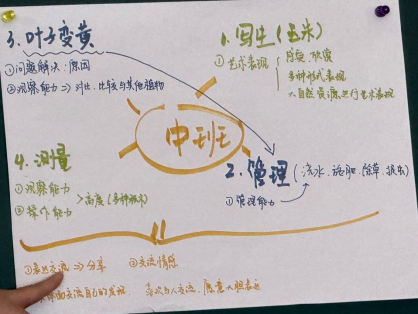 1. 写生（玉米）
① 艺术表现
感受、欣赏
多种形式表现
大自然资源进行艺术表现
中班
2. 管理（浇水、施肥、除草、捉虫）
① 管理能力
3. 叶子变黄
① 问题解决：原因
② 观察能力 => 对比、比较与其他植物
4. 测量
① 观察能力
② 操作能力
高度（多种
① 表达交流 => 分享
② 交流情感
面交流自己的发现
喜欢与人交流、愿意大胆表达